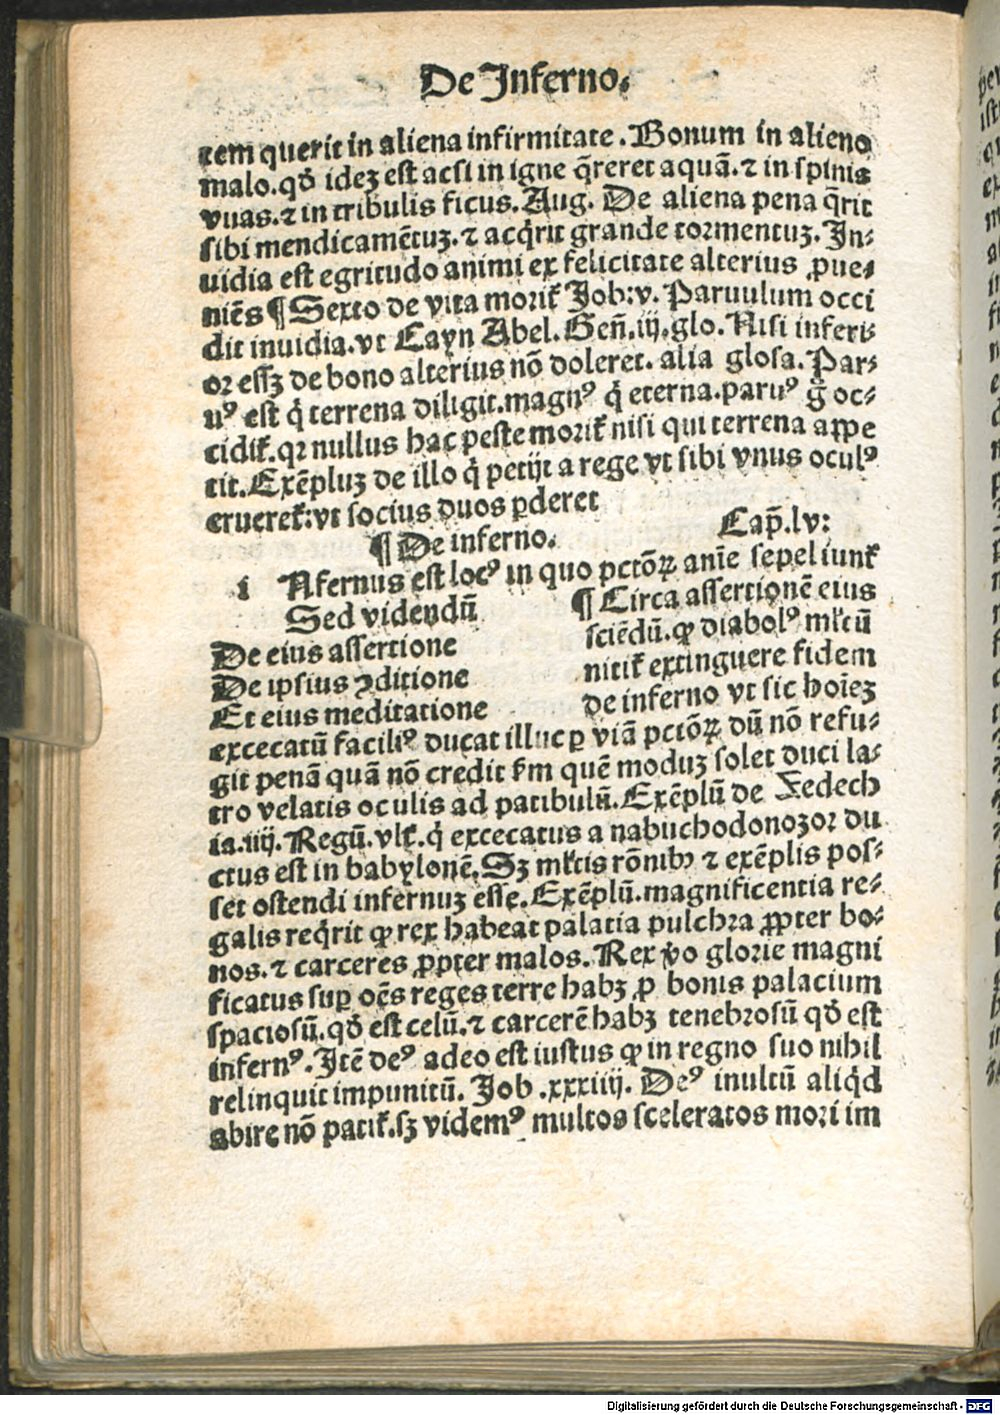 De Inferno.
tem querit in aliena infirmitate. Bonum in alieno
malo. qḋ ideꝫ est acsi in igne q̄reret aquā. ⁊ in spinis
vuas. ⁊ in tribulis ficus. Aug. De aliena pena q̄rit
sibi mendicamētuꝫ. ⁊ acq̇rit grande tormentuꝫ. In-
uidia est egritudo animi ex felicitate alterius ꝓue-
niēs ¶ Sexto de vita moriť Job: v. Paruulum occi
dit inuidia. vt Cayn Abel. Geñ. iij. glo. Nisi inferi-
oꝛ essꝫ de bono alterius nō doleret. alia glosa. Par-
uꝰ est q̇ terrena diligit. magnꝰ q̇ eterna. paruꝰ g̃ oc-
cidiť. qꝛ nullus hac peste moriť nisi qui terrena aꝑpe
tit. Exēpluꝫ de illo q̇ petijt a rege vt sibi vnus oculꝰ
erueret: vt socius duos ꝑderet
¶ De inferno. Cap̄. lv:
i Nfernus est locꝰ in quo pctōꝝ anīe sepeliunť
Sed videndū
De eius assertione
De ipsius ꝯditione
Et eius meditatione
¶ Circa assertionē eius
sciēdū. ꝙ diabolꝰ mľtū
nitiť extinguere fidem
de inferno vt sic hoīeꝫ
excecatū faciliꝰ ducat illuc ꝑ viā pctōꝝ dū nō refu-
git penā quā nō credit ẜm quē moduꝫ solet duci la-
tro velatis oculis ad patibulū. Exēplū de Zedech
ia. iiij. Regū. vlť. q̇ excecatus a nabuchodonozoꝛ du
ctus est in babylonē. Sꝫ mľtis rōnibꝰ ⁊ exēplis pos-
set ostendi infernuꝫ esse. Exēplū. magnificentia re-
galis req̇rit ꝙ rex habeat palatia pulchꝛa ꝓpter bo-
nos. ⁊ carceres ꝓpter malos. Rex v̊o glorie magni
ficatus suꝑ oēs reges terre habꝫ ꝓ bonis palacium
spaciosū. qḋ est celū. ⁊ carcerē habꝫ tenebꝛosū qḋ est
infernꝰ. Itē deꝰ adeo est iustus ꝙ in regno suo nihil
relinquit impunitū. Job .xxxiiij. Deꝰ inultū aliq̇d
abire nō patiť. sꝫ videmꝰ multos sceleratos moꝛi im
Digitalisierung gefördert durch die Deutsche Forschungsgemeinschaft - DFG